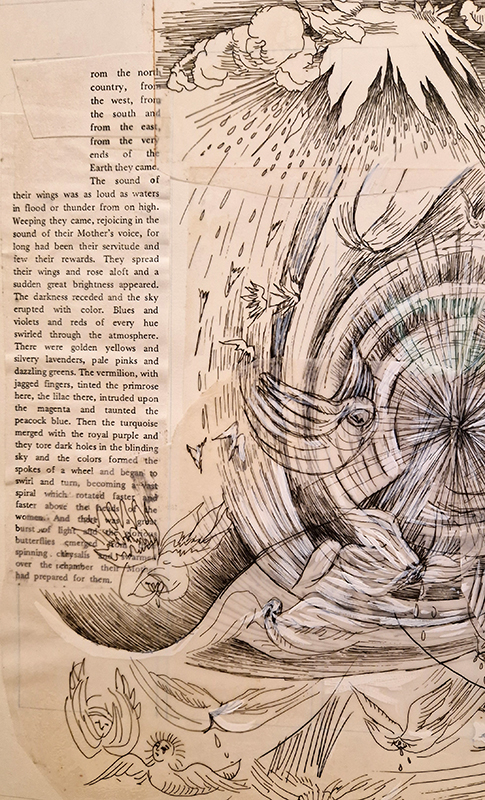 rom the north
country, from
the west, from
the south and
from the east,
from the very
ends of the
Earth they came.
The sound of
their wings was as loud as waters
in flood or thunder from on high.
Weeping they came, rejoicing in the
sound of their Mother's voice, for
long had been their servitude and
few their rewards. They spread
their wings and rose aloft and a
sudden great brightness appeared.
The darkness receded and the sky
erupted with color. Blues and
violets and reds of every hue
swirled through the atmosphere.
There were golden yellows and
silvery lavenders, pale pinks and
dazzling greens. The vermilion, with
jagged fingers, tinted the primrose
here, the lilac there, intruded upon
the magenta and taunted the
peacock blue. Then the turquoise
merged with the royal purple and
they tore dark holes in the blinding
sky and the colors formed the
spokes of a wheel and began to
swirl and turn, becoming a vast
spiral which rotated faster and
faster above the heads of the
women. And there was a great
burst of light and the
butterflies emerged
spinning chrysalis and swarmed
over the chamber their
had prepared for them.